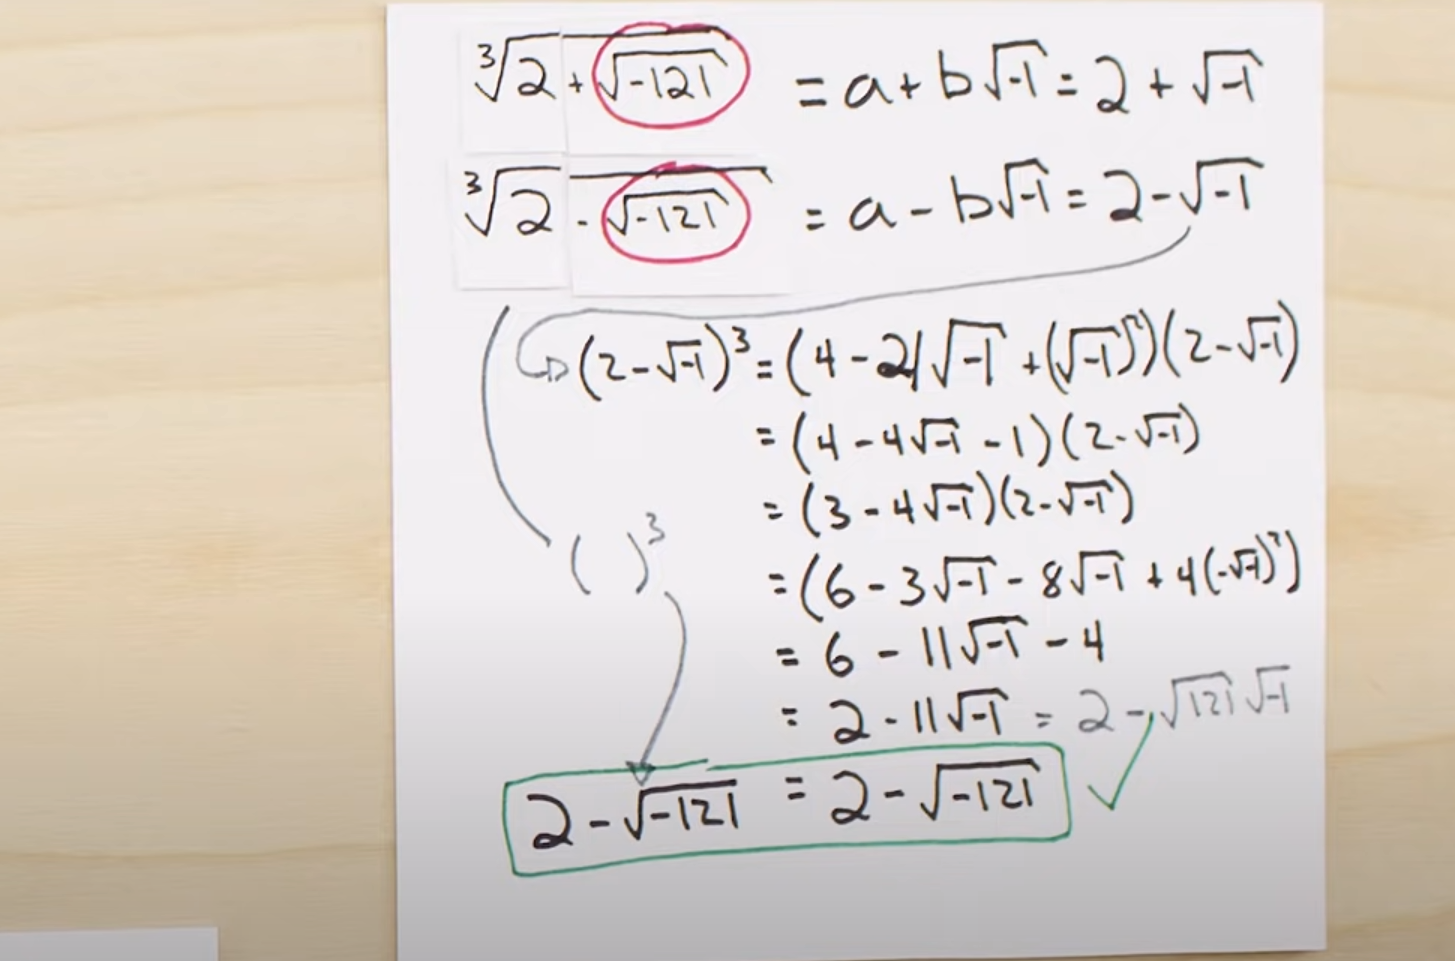 ∛(2 + √-121) = a + b√-1 = 2 + √-1
∛(2 - √-121) = a - b√-1 = 2 - √-1
(2 - √-1)³ = (4 - 2√-1 + (√-1)²)(2 - √-1)
= (4 - 4√-1 - 1)(2 - √-1)
= (3 - 4√-1)(2 - √-1)
( )³
= (6 - 3√-1 - 8√-1 + 4(-√-1)²)
= 6 - 11√-1 - 4
= 2 - 11√-1 = 2 - √121 √-1
2 - √-121 = 2 - √-121 ✓